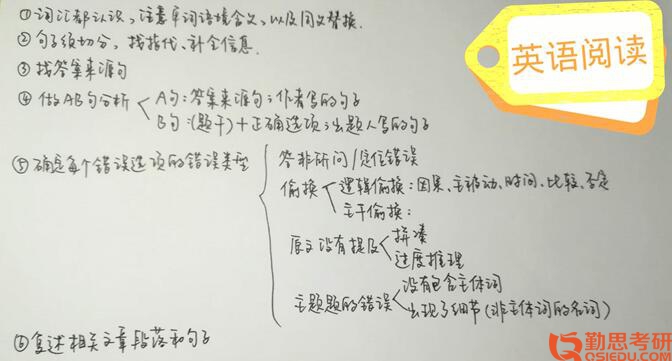 ①词汇都认识,注意单词语境含义,以及同义替换.
②句子级切分,找指代、补全信息.
③找答案来源句
④做AB句分析
A句:答案来源句;作者写的句子
B句:(题干)+正确选项;出题人写的句子
⑤确定每个错误选项的错误类型
答非所问/定位错误
偷换
逻辑偷换:因果、主被动、时间、比较、否定
主干偷换:
原文没有提及
拼凑
过度推理
主题题的错误
没有包含主体词
出现了细节(非主体词的名词)
⑥复述相关文章段落和句子
英语阅读
勤思考研
QSIEDU.COM